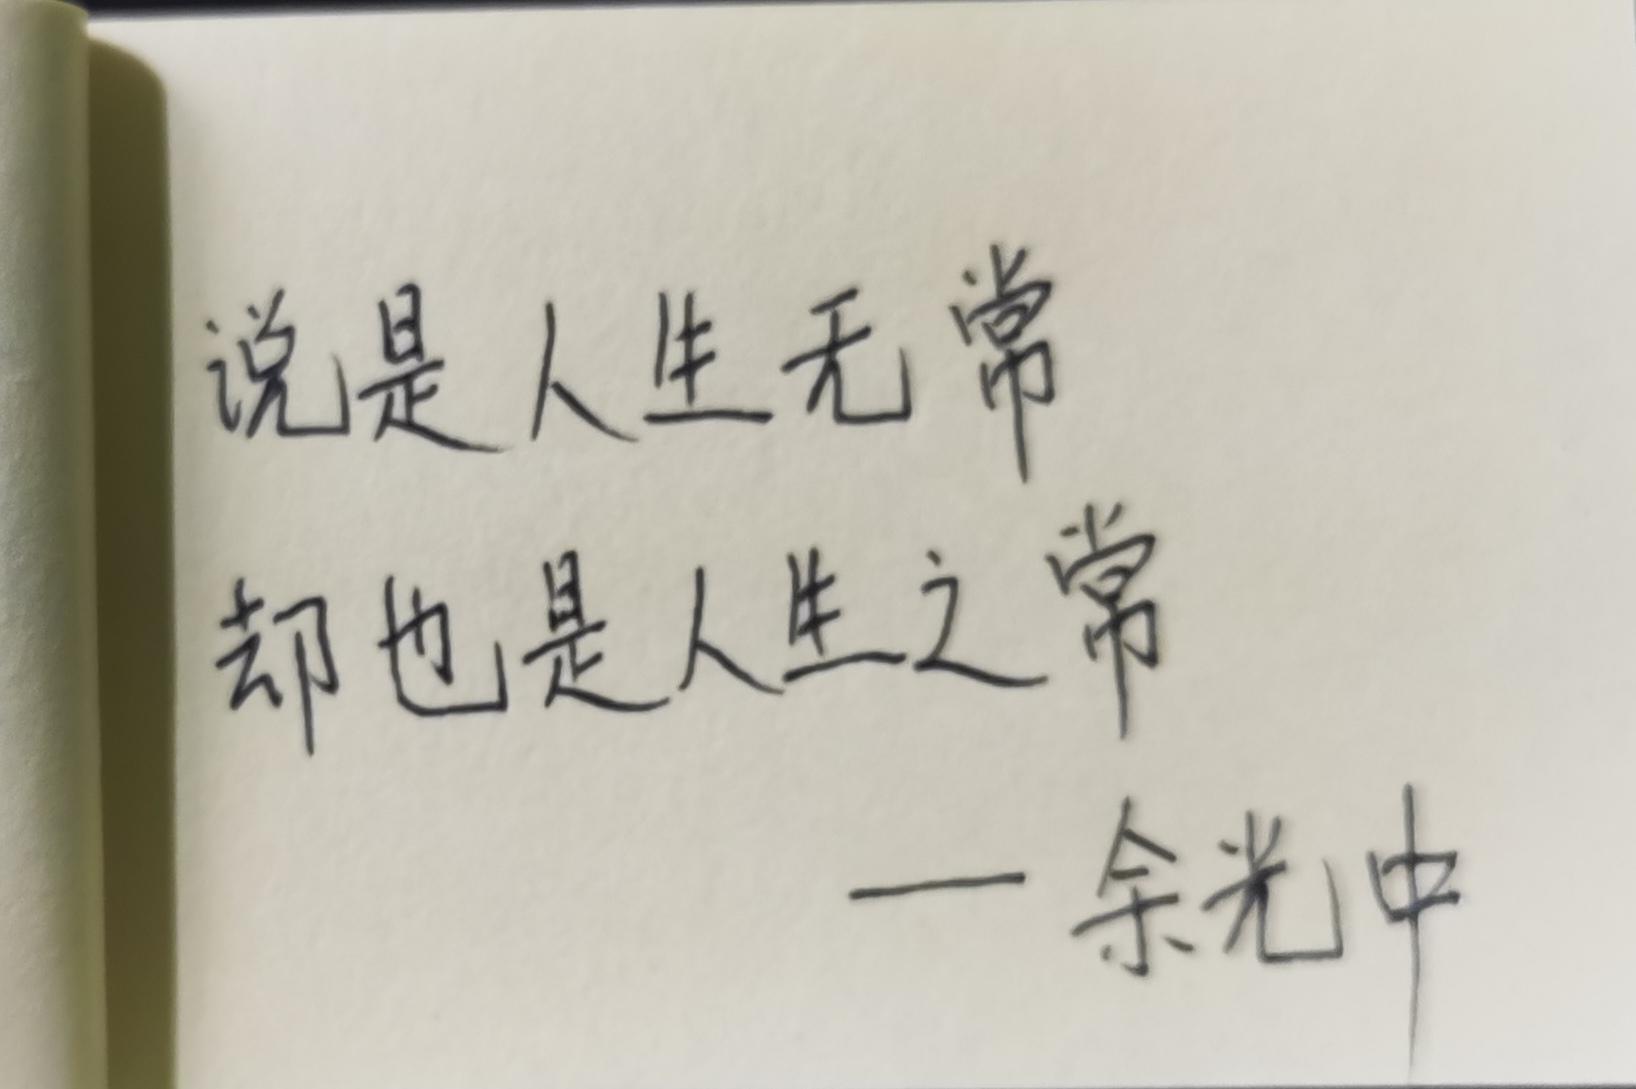 说是人生无常
却也是人生之常
— 余光中